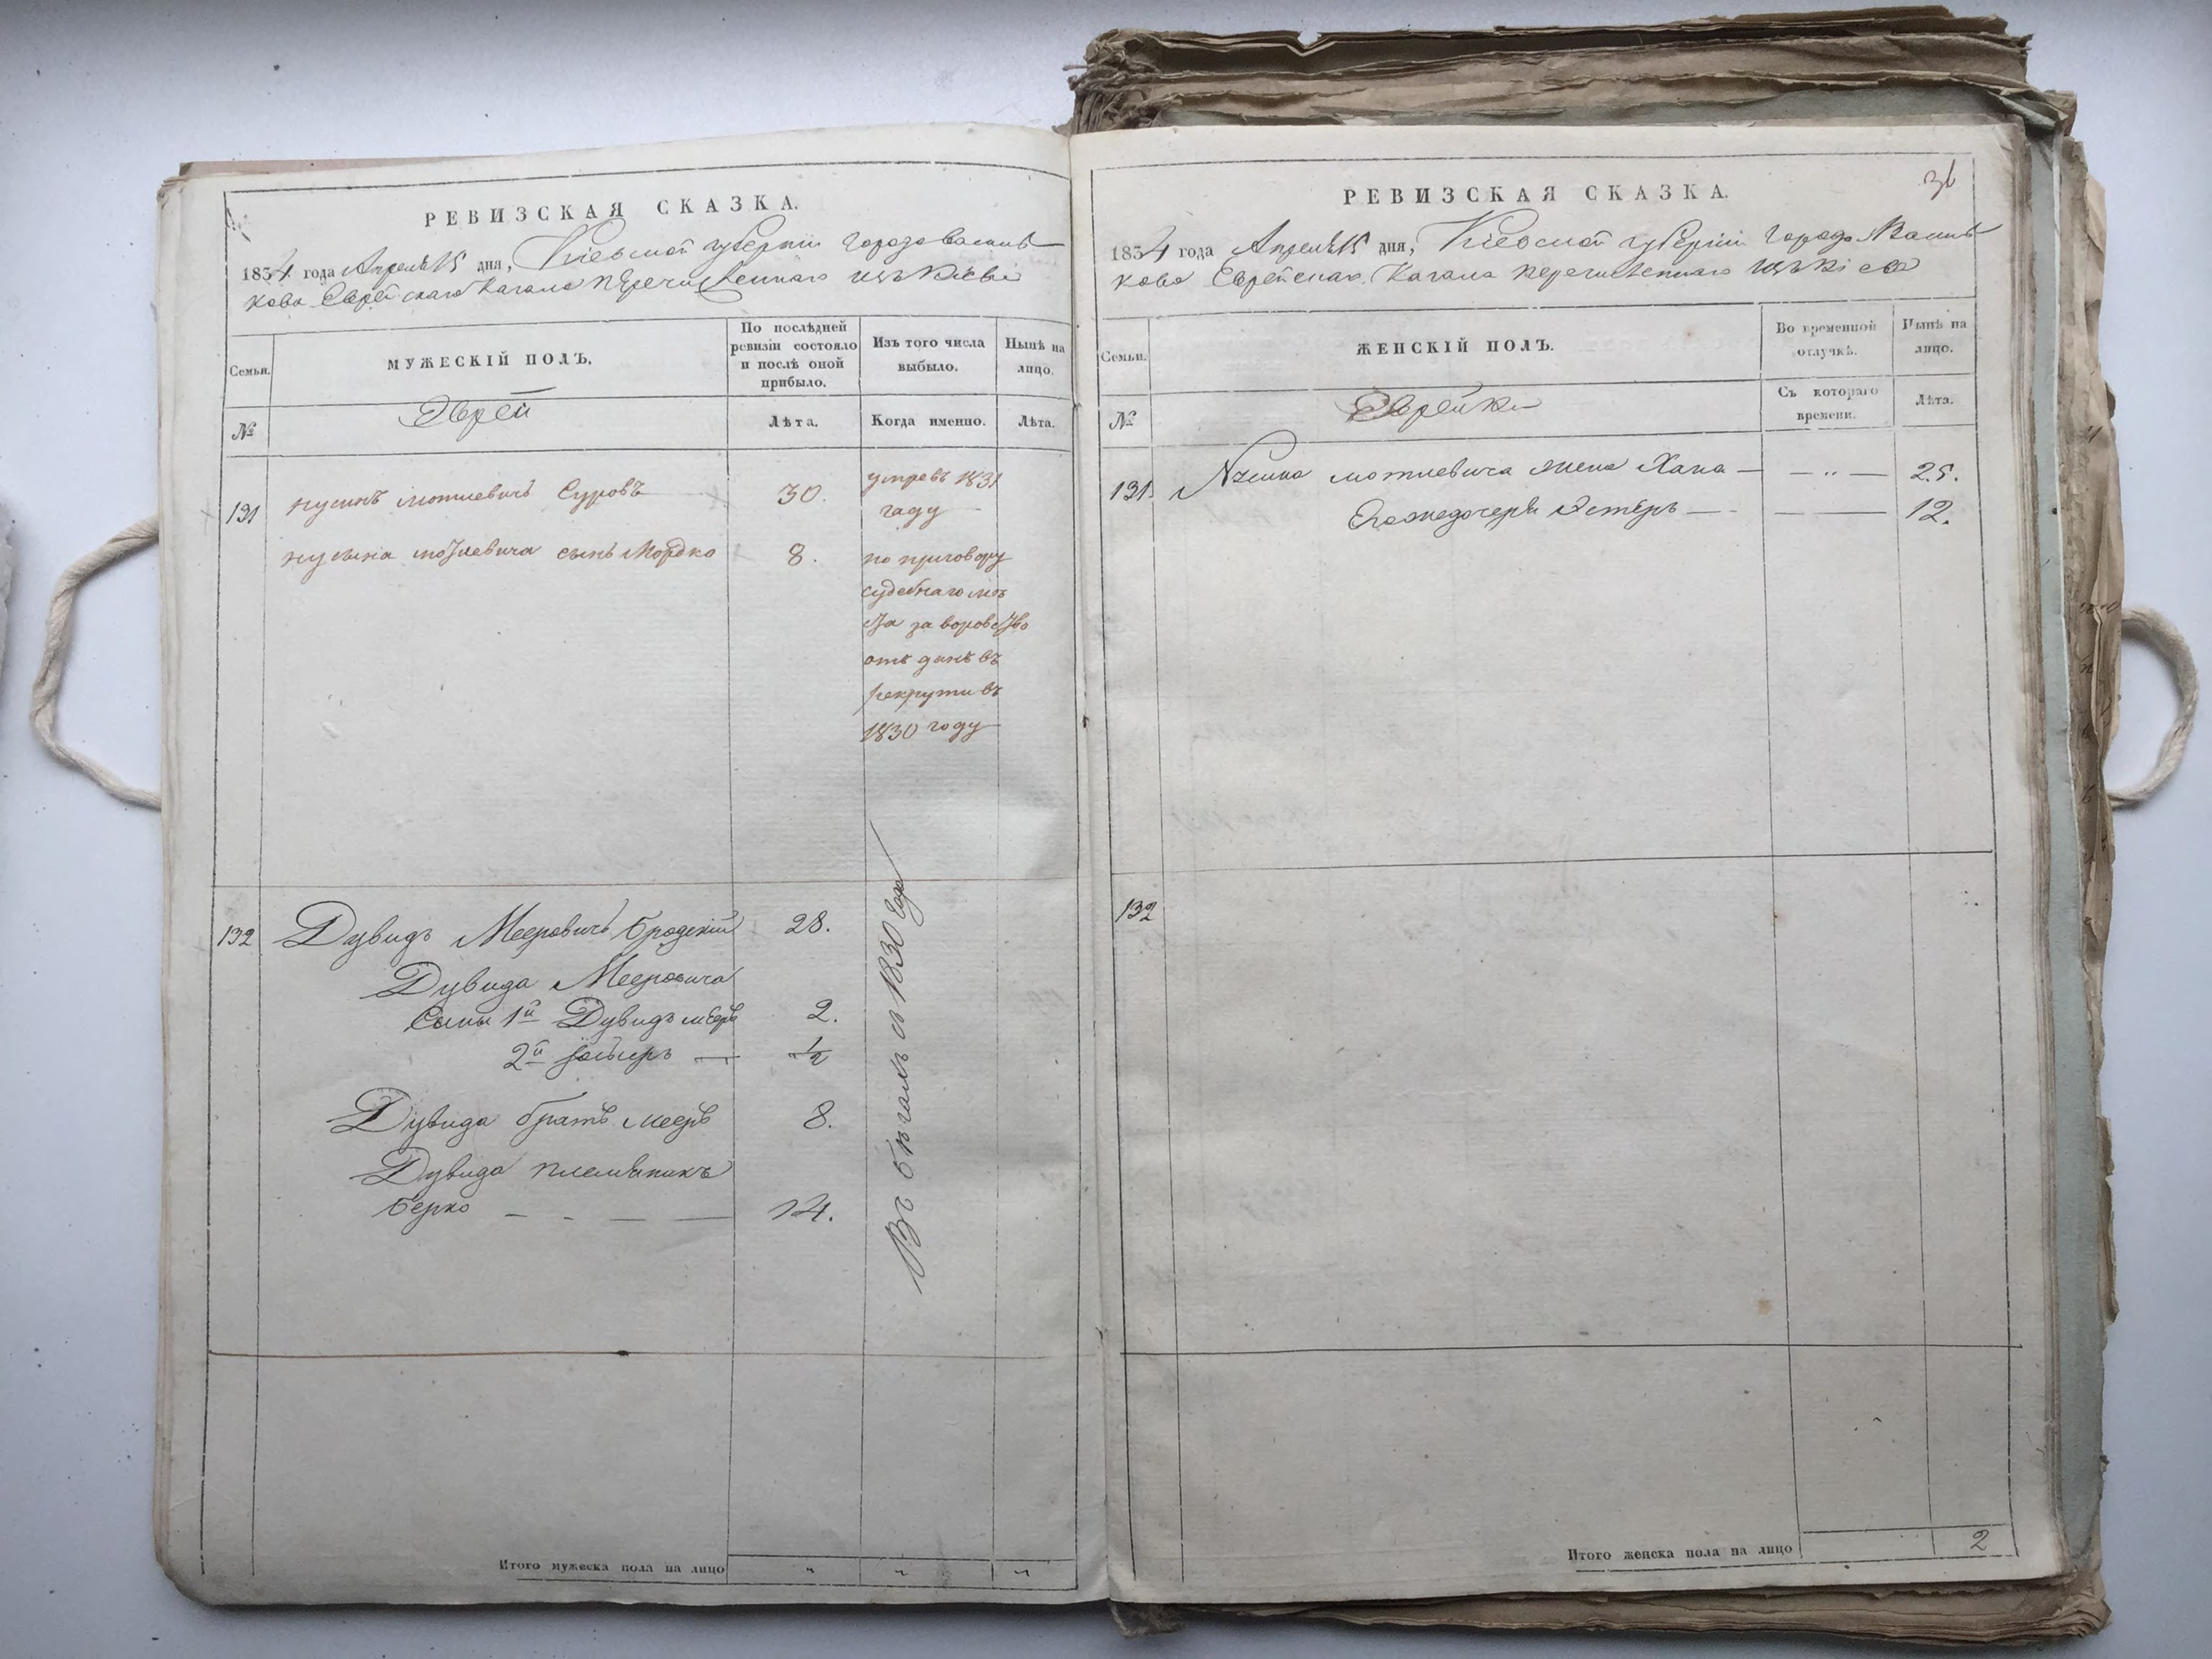 РЕВИЗСКАЯ СКАЗКА.
1834 года Апреля 15 дня, Кіевской губерніи города Василь
кова Еврейскаго Кагала перечисленнаго изъ Кіева
Семьи.
МУЖЕСКІЙ ПОЛЪ.
По послѣдней ревизіи состояло и послѣ оной прибыло.
Изъ того числа выбыло.
Нынѣ на лицо.
№
Еврей
Лѣта.
Когда именно.
Лѣта.
131 Нусинъ Мотлевичъ Суровъ 30. умре въ 1831
гаду
Нусина Мотлевича сынъ Мордко 8. по приговору
судебнаго мѣ
ста за воровство
отъ данъ въ
рекруты въ
1830 году
132 Дувидъ Мееровичъ Бродскій 28.
Дувида Мееровича
Сыны 1й Дувидъ Мееръ 2.
2й ½
Дувида братъ Мееръ 8.
Дувида племѣникъ
Берко — - — — 14.
Въ бѣгахъ съ 1830 года
Итого мужеска пола на лицо " " "
РЕВИЗСКАЯ СКАЗКА.
1834 года Апреля 15 дня, Кіевской губерніи города Василь
кова Еврейскаго Кагала перечисленнаго изъ Кіева
Семьи.
ЖЕНСКІЙ ПОЛЪ.
Во временной отлучкѣ.
Нынѣ на лицо.
№
Еврейки
Съ котораго времени.
Лѣта.
131 Нусина Мотлевича жена Хана — — " — 25.
Его же дочерь Эстеръ — - — — 12.
132
Итого женска пола на лицо 2